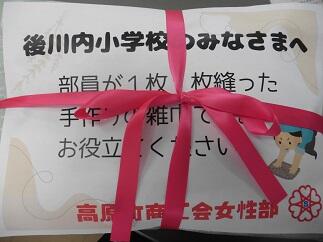 後川内小学校のみなさまへ
部員が1枚1枚縫った
手作りの雑巾です
お役立てください
高原町商工会女性部